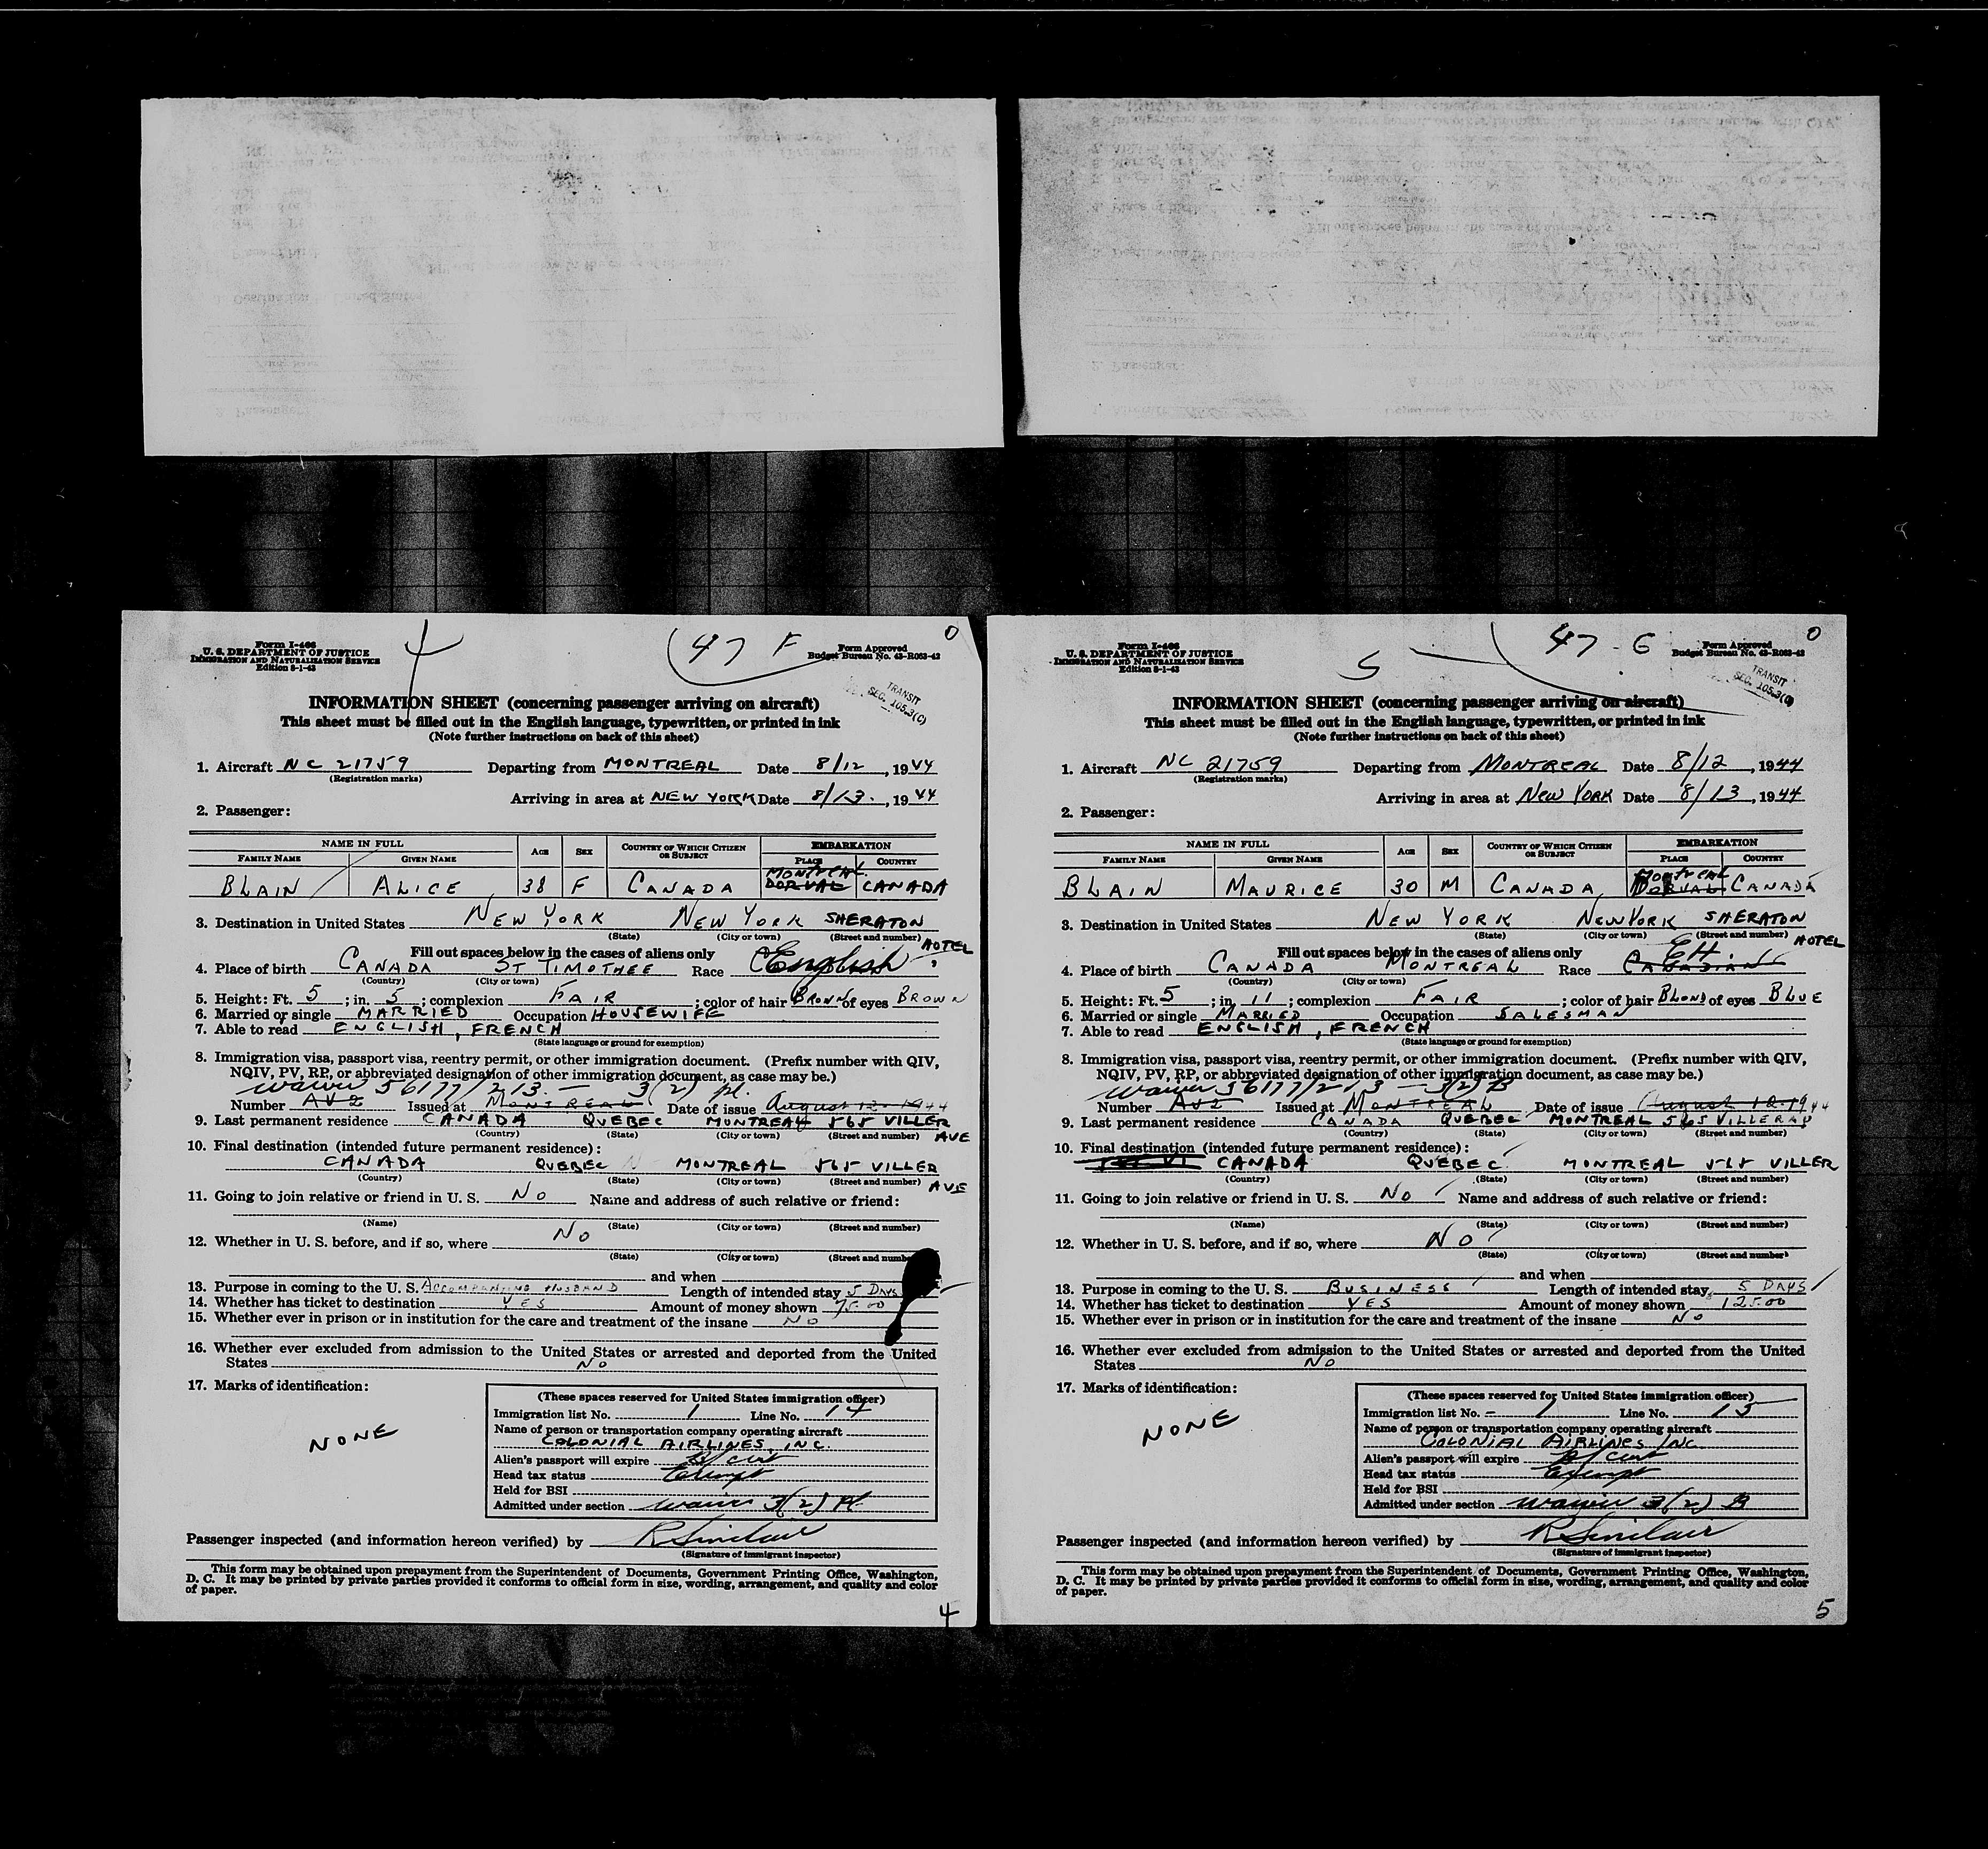 Form I-466
U. S. DEPARTMENT OF JUSTICE
IMMIGRATION AND NATURALIZATION SERVICE
Edition 8-1-43
4
47 F
0
Form Approved
Budget Bureau No. 43-R063-42
TRANSIT
SEC. 105.3(C)
INFORMATION SHEET (concerning passenger arriving on aircraft)
This sheet must be filled out in the English language, typewritten, or printed in ink
(Note further instructions on back of this sheet)
1. Aircraft NC 21759 Departing from MONTREAL Date 8/12, 1944
(Registration marks)
Arriving in area at NEW YORK Date 8/13, 1944
2. Passenger:
NAME IN FULL AGE SEX COUNTRY OF WHICH CITIZEN OR SUBJECT EMBARKATION
FAMILY NAME GIVEN NAME PLACE COUNTRY
MONTREAL
BLAIN ALICE 38 F CANADA DORVAL CANADA
3. Destination in United States NEW YORK NEW YORK SHERATON
(State) (City or town) (Street and number) HOTEL
Fill out spaces below in the cases of aliens only
4. Place of birth CANADA ST TIMOTHEE Race English
(Country) (City or town)
5. Height: Ft. 5; in. 5; complexion FAIR; color of hair BROWN of eyes BROWN
6. Married or single MARRIED Occupation HOUSEWIFE
7. Able to read ENGLISH, FRENCH
(State language or ground for exemption)
8. Immigration visa, passport visa, reentry permit, or other immigration document. (Prefix number with QIV,
NQIV, PV, RP, or abbreviated designation of other immigration document, as case may be.)
waiver 56177/213 - 3(2) Pl.
Number AV2 Issued at MONTREAL Date of issue August 12-1944
9. Last permanent residence CANADA QUEBEC MONTREAL 565 VILLER
(Country) (State) (City or town) (Street and number) AVE
10. Final destination (intended future permanent residence):
CANADA QUEBEC MONTREAL 565 VILLER
(Country) (State) (City or town) (Street and number) AVE
11. Going to join relative or friend in U. S. NO Name and address of such relative or friend:
(Name) (State) (City or town) (Street and number)
12. Whether in U. S. before, and if so, where NO
(State) (City or town) (Street and number
and when
13. Purpose in coming to the U. S. ACCOMPANYING HUSBAND Length of intended stay 5 DAYS
14. Whether has ticket to destination YES Amount of money shown 75.00
15. Whether ever in prison or in institution for the care and treatment of the insane NO
16. Whether ever excluded from admission to the United States or arrested and deported from the United
States NO
17. Marks of identification:
NONE
(These spaces reserved for United States immigration officer)
Immigration list No. 1 Line No. 14
Name of person or transportation company operating aircraft
COLONIAL AIRLINES, INC.
Alien's passport will expire B/cert
Head tax status Exempt
Held for BSI
Admitted under section waiver 3(2) Pl.
Passenger inspected (and information hereon verified) by R Sinclair
(Signature of immigrant inspector)
This form may be obtained upon prepayment from the Superintendent of Documents, Government Printing Office, Washington,
D. C. It may be printed by private parties provided it conforms to official form in size, wording, arrangement, and quality and color
of paper.
4
Form I-466
U. S. DEPARTMENT OF JUSTICE
IMMIGRATION AND NATURALIZATION SERVICE
Edition 8-1-43
5
47 - G
0
Form Approved
Budget Bureau No. 43-R063-42
TRANSIT
SEC. 105.3(C)
INFORMATION SHEET (concerning passenger arriving on aircraft)
This sheet must be filled out in the English language, typewritten, or printed in ink
(Note further instructions on back of this sheet)
1. Aircraft NC 21759 Departing from MONTREAL Date 8/12, 1944
(Registration marks)
Arriving in area at NEW YORK Date 8/13, 1944
2. Passenger:
NAME IN FULL AGE SEX COUNTRY OF WHICH CITIZEN OR SUBJECT EMBARKATION
FAMILY NAME GIVEN NAME PLACE COUNTRY
Montreal
BLAIN MAURICE 30 M CANADA DORVAL CANADA
3. Destination in United States NEW YORK NEW YORK SHERATON
(State) (City or town) (Street and number) HOTEL
Fill out spaces below in the cases of aliens only
4. Place of birth CANADA MONTREAL Race CANADIAN
(Country) (City or town)
5. Height: Ft. 5; in. 11; complexion FAIR; color of hair BLOND of eyes BLUE
6. Married or single MARRIED Occupation SALESMAN
7. Able to read ENGLISH, FRENCH
(State language or ground for exemption)
8. Immigration visa, passport visa, reentry permit, or other immigration document. (Prefix number with QIV,
NQIV, PV, RP, or abbreviated designation of other immigration document, as case may be.)
waiver 56177/213 - 3(2) B
Number AV2 Issued at MONTREAL Date of issue August 12-1944
9. Last permanent residence CANADA QUEBEC MONTREAL 565 VILLERAY
(Country) (State) (City or town) (Street and number)
10. Final destination (intended future permanent residence):
CANADA QUEBEC MONTREAL 565 VILLER
(Country) (State) (City or town) (Street and number)
11. Going to join relative or friend in U. S. NO Name and address of such relative or friend:
(Name) (State) (City or town) (Street and number)
12. Whether in U. S. before, and if so, where NO
(State) (City or town) (Street and number)
and when
13. Purpose in coming to the U. S. BUSINESS Length of intended stay 5 DAYS
14. Whether has ticket to destination YES Amount of money shown 125.00
15. Whether ever in prison or in institution for the care and treatment of the insane NO
16. Whether ever excluded from admission to the United States or arrested and deported from the United
States NO
17. Marks of identification:
NONE
(These spaces reserved for United States immigration officer)
Immigration list No. - 1 Line No. 15
Name of person or transportation company operating aircraft
COLONIAL AIRLINES INC.
Alien's passport will expire B/cert
Head tax status Exempt
Held for BSI
Admitted under section waiver 3(2) B
Passenger inspected (and information hereon verified) by R Sinclair
(Signature of immigrant inspector)
This form may be obtained upon prepayment from the Superintendent of Documents, Government Printing Office, Washington,
D. C. It may be printed by private parties provided it conforms to official form in size, wording, arrangement, and quality and color
of paper.
5